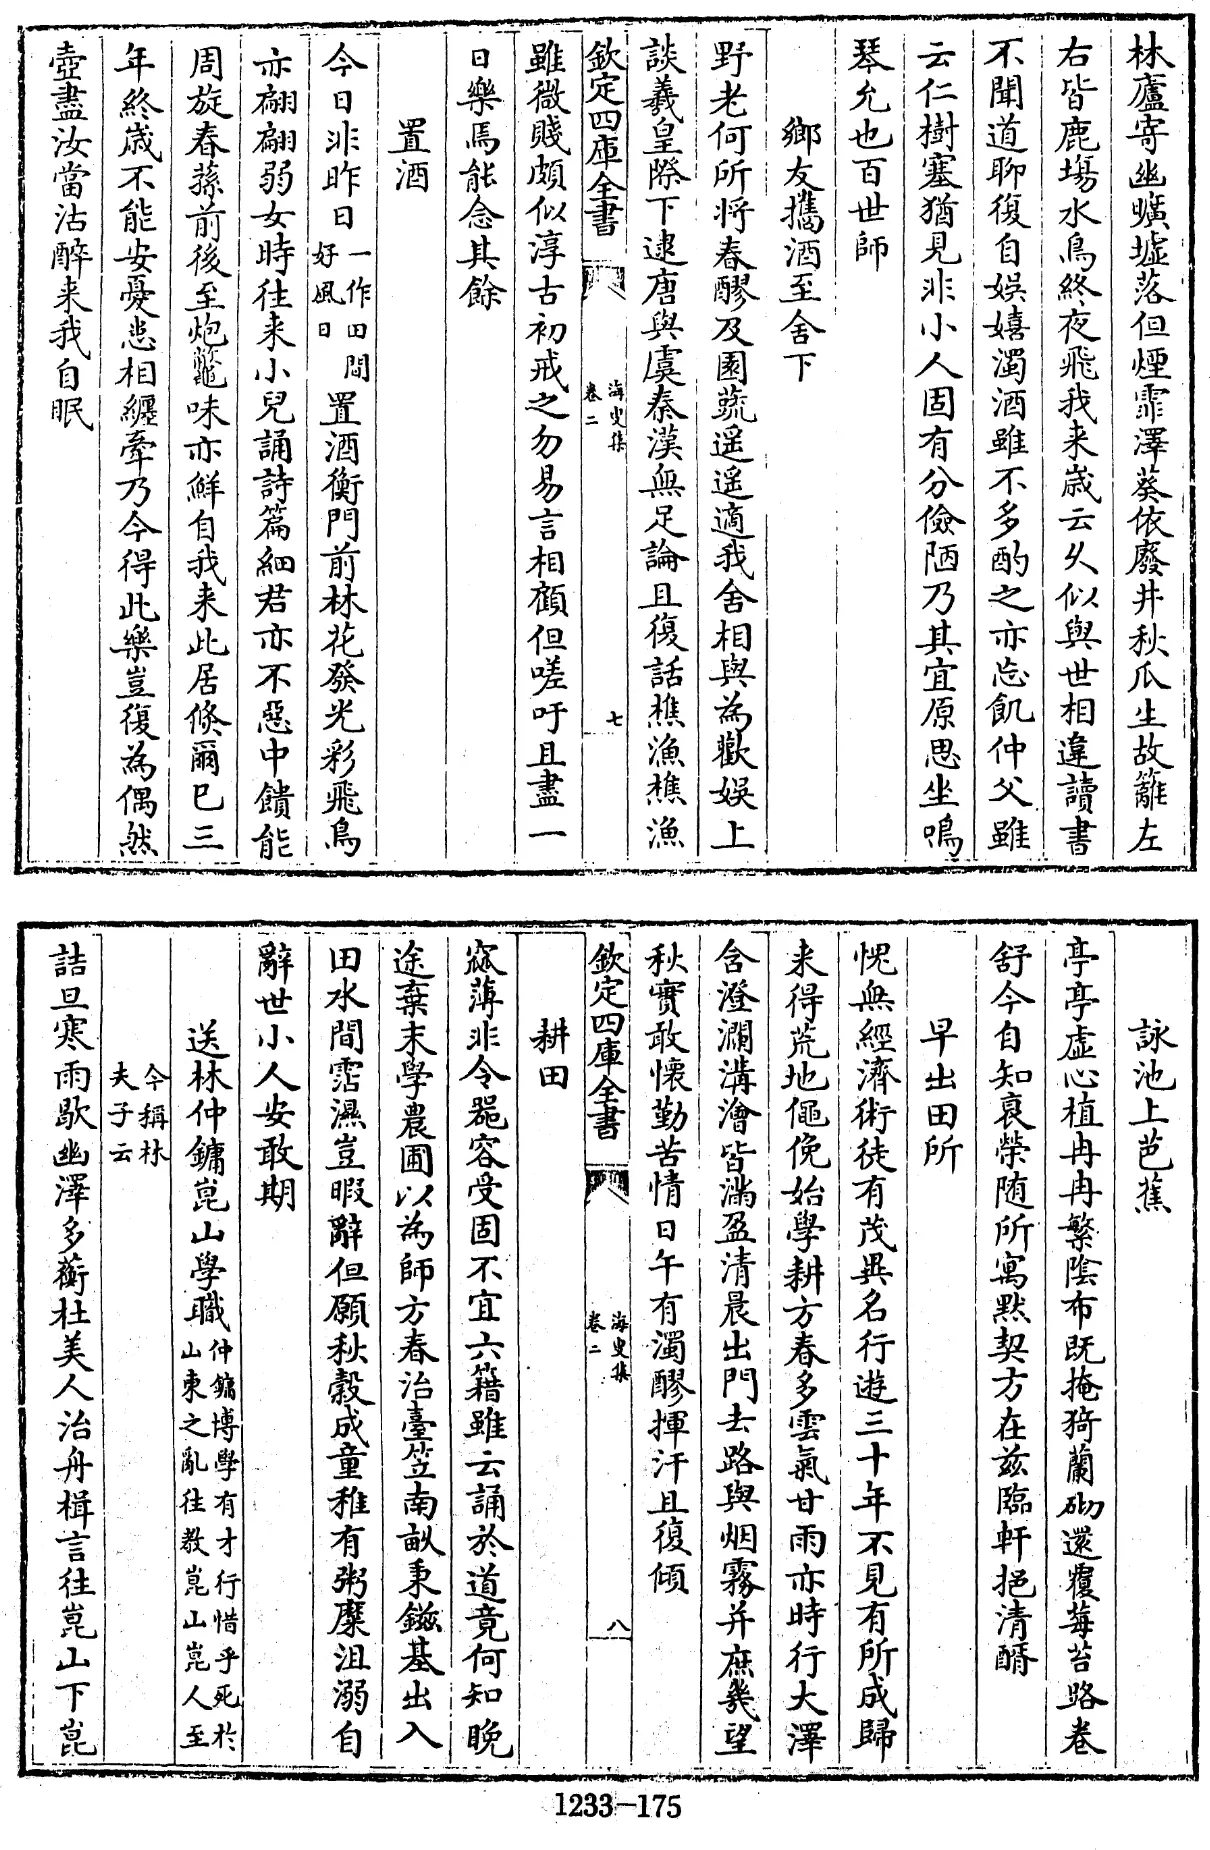 林廬寄幽曠墟落但煙霏澤葵依廢井秋瓜生故籬左
右皆鹿場水鳥終夜飛我来歳云久似與世相違讀書
不聞道聊復自娯嬉濁酒雖不多酌之亦忘飢仲父雖
云仁樹塞猶見非小人固有分儉陋乃其宜原思坐鳴
琴允也百世師
鄉友攜酒至舍下
野老何所將春醪及園蔬遥遥適我舍相與為歡娯上
談羲皇際下逮唐與虞秦漢無足論且復話樵漁樵漁
欽定四庫全書
海叟集
卷二
七
雖微賤頗似淳古初戒之勿易言相顧但嗟吁且盡一
日樂焉能念其餘
置酒
今日非昨日一作田間好風日置酒衡門前林花發光彩飛鳥
亦翩翩弱女時往来小兒誦詩篇細君亦不惡中饋能
周旋春蓀前後至炮鼈味亦鮮自我来此居倐爾已三
年終歳不能安憂患相纒牽乃今得此樂豈復為偶然
壺盡汝當沽醉来我自眠
詠池上芭蕉
亭亭虚心植冉冉繁陰布既掩猗蘭砌還覆莓苔路卷
舒今自知衰榮随所寓黙契方在兹臨軒挹清醑
早出田所
愧無經濟術徒有茂異名行遊三十年不見有所成歸
来得荒地僶俛始學耕方春多雲氣甘雨亦時行大澤
含澄瀾溝澮皆滿盈清晨出門去路與烟霧并庶幾望
秋實敢懐勤苦情日午有濁醪揮汗且復傾
欽定四庫全書
海叟集
卷二
八
耕田
窳薄非令器容受固不宜六籍雖云誦於道竟何知晚
途棄末學農圃以為師方春治臺笠南畝秉鎡基出入
田水間霑濕豈暇辭但願秋穀成童稚有粥糜沮溺自
辭世小人安敢期
送林仲鏞崑山學職仲鏞博學有才行惜乎死於山東之亂往教崑山崑人至
今稱林夫子云
詰旦寒雨歇幽澤多蘅杜美人治舟楫言往崑山下崑
1233-175